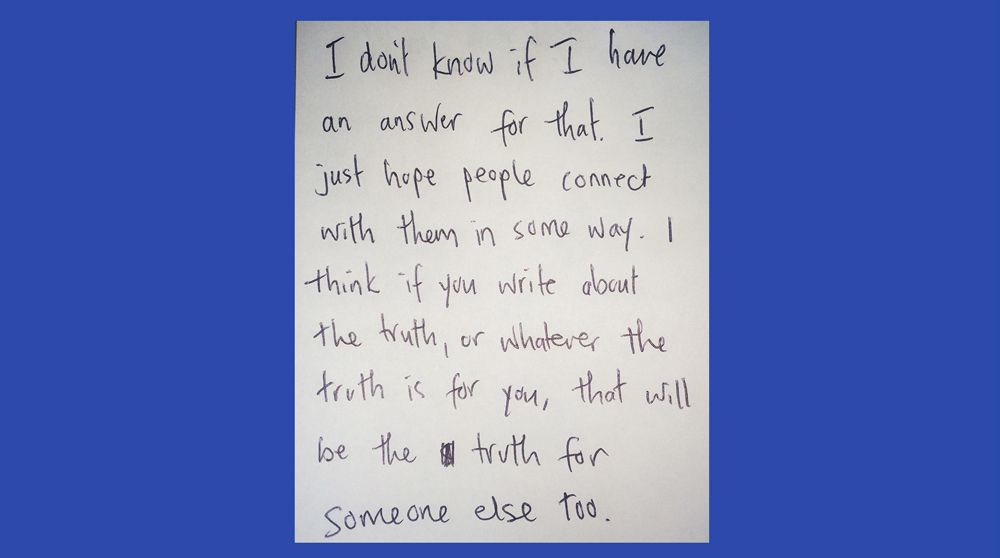 I don't know if I have
an answer for that. I
just hope people connect
with them in some way. I
think if you write about
the truth, or whatever the
truth is for you, that will
be the truth for
someone else too.